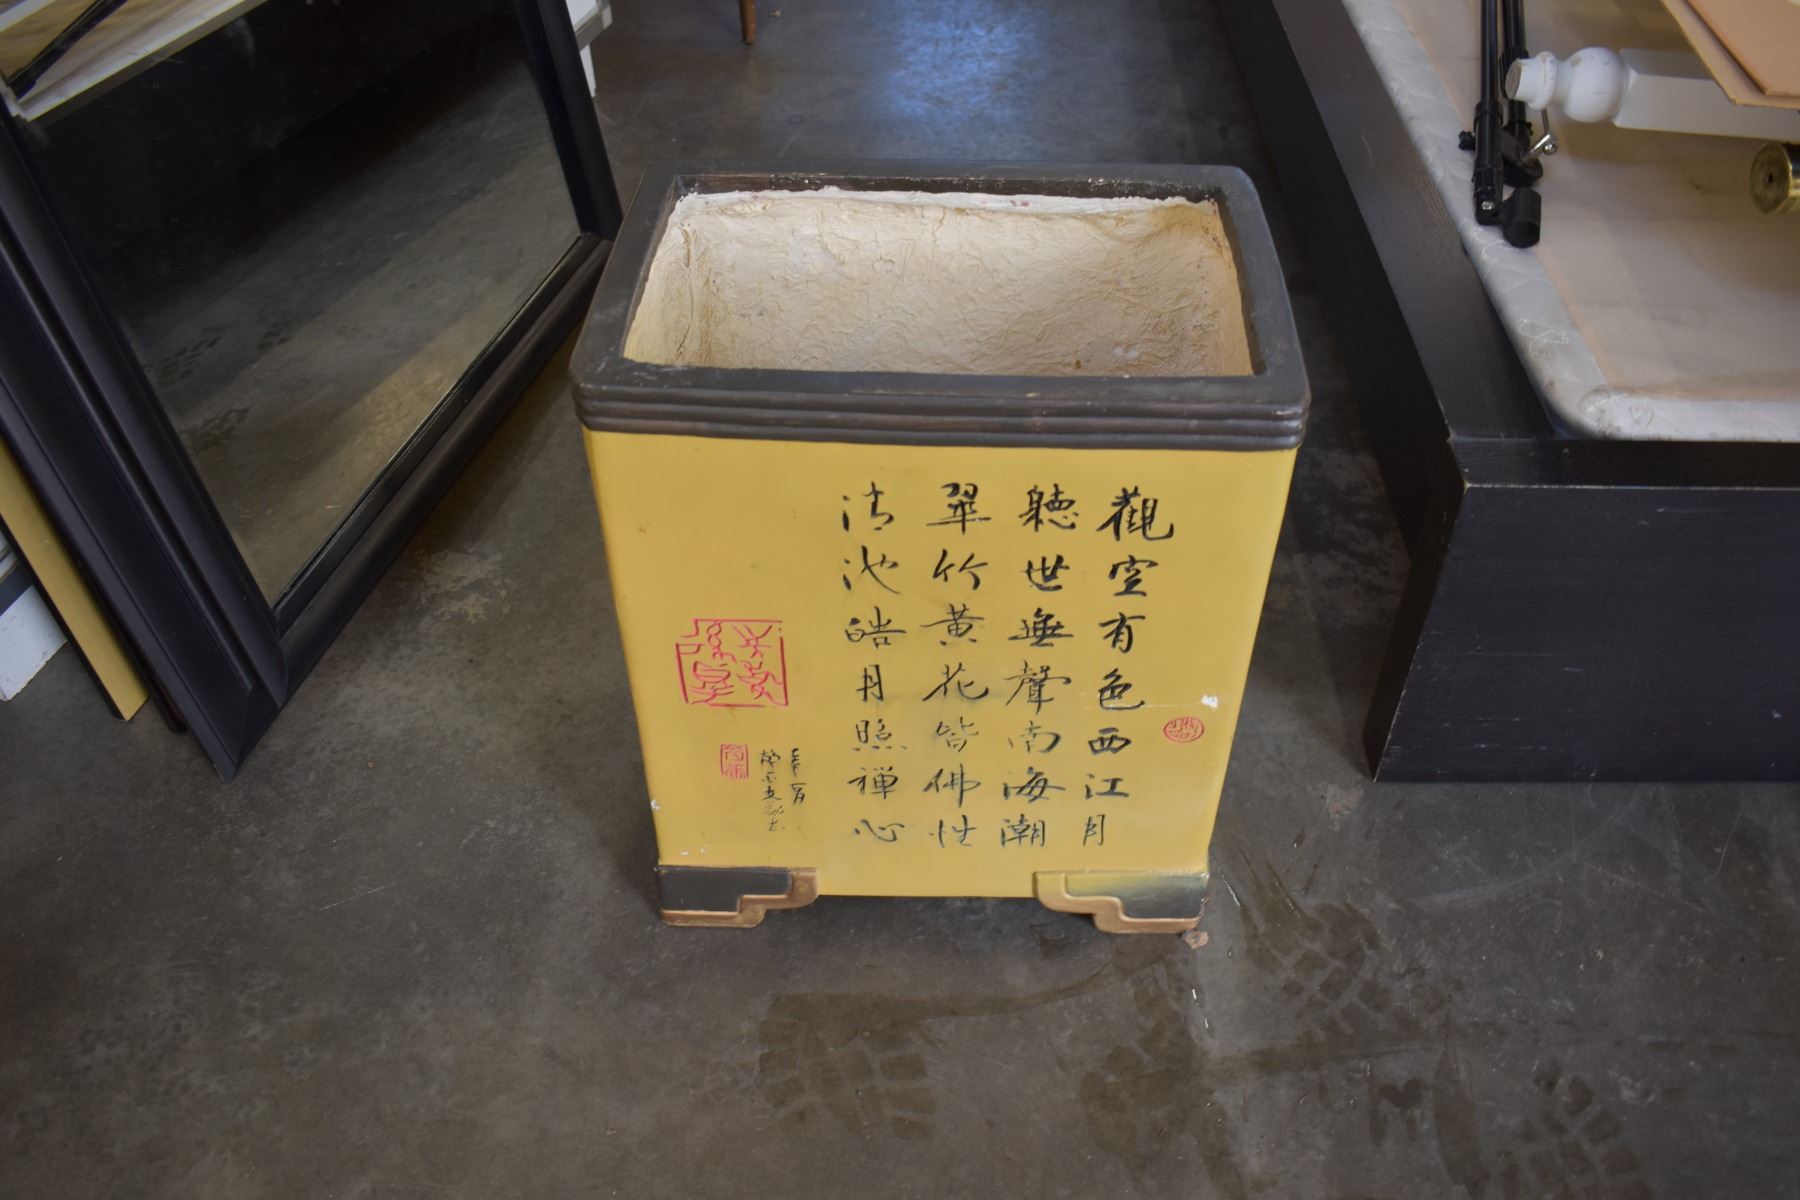 觀空有色西江月
聽世無聲南海潮
翠竹黃花皆佛性
清池皓月照禪心